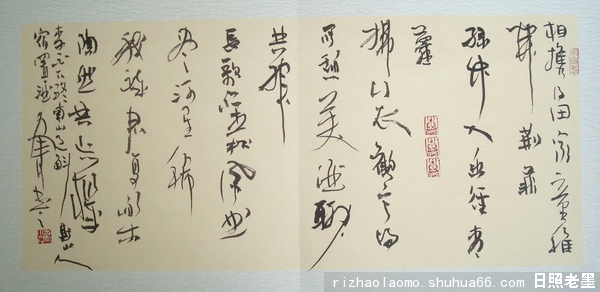 相携及田家童稚
开荆扉
绿竹入幽径青
萝
拂行衣欢言得
所憩美酒聊
共挥
长歌吟松风曲
尽河星稀
我醉君复乐
陶然共忘机
李白下终南山过斛斯山人
宿置酒
rizhaolaomo.shuhua66.com 日照老墨